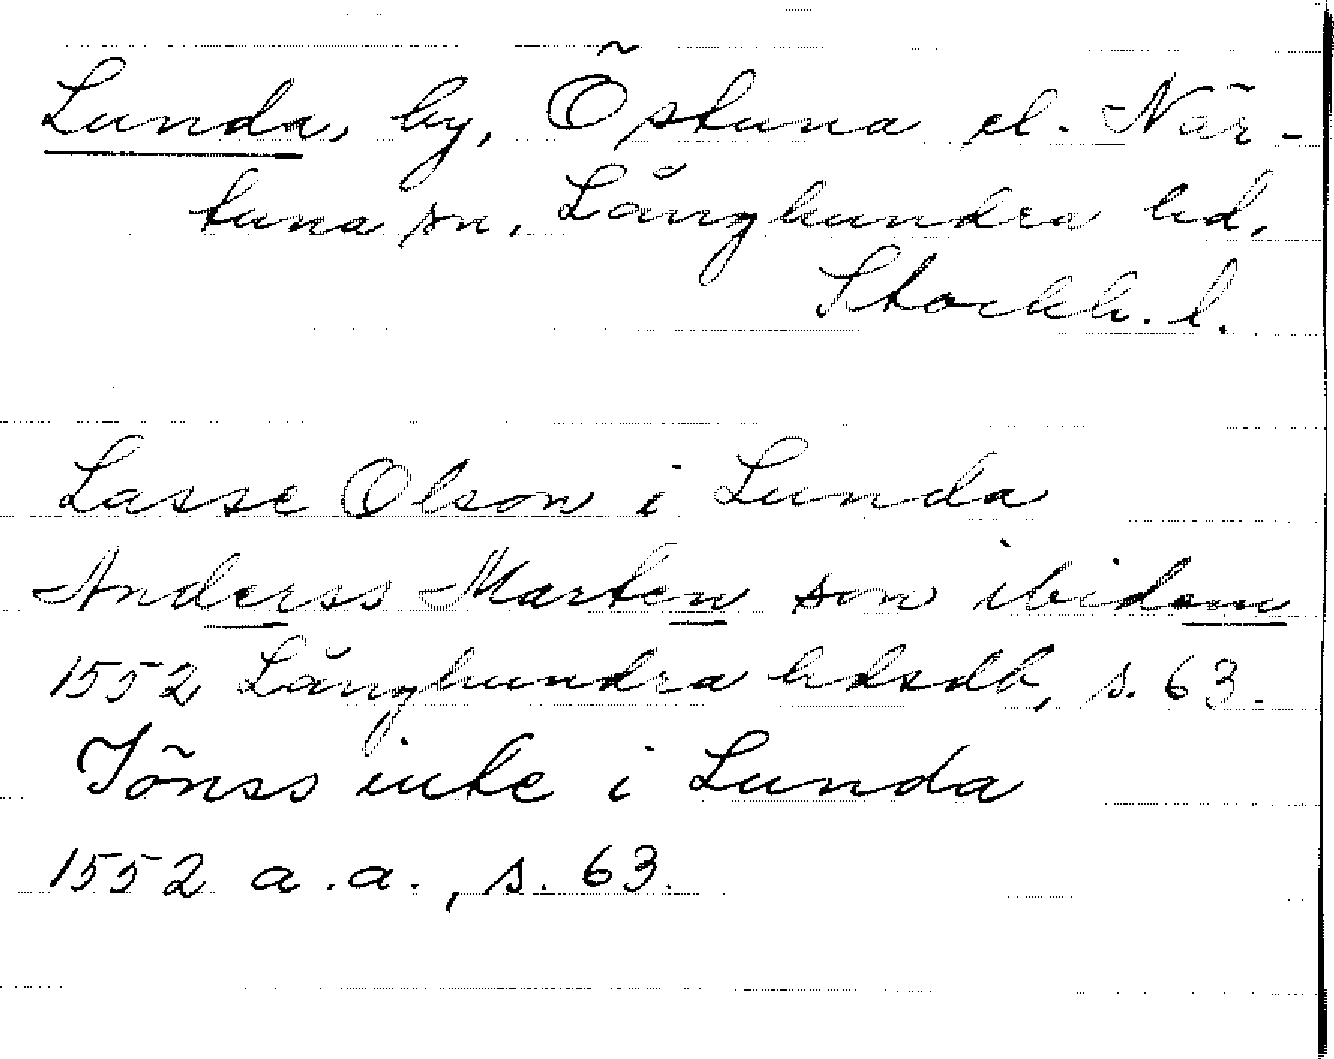 Lunda, by, Östuna el. När-
tuna sn, Långhundra hd,
Stockh. l.
Lasse Olson i Lunda
Anderss Marten son ibidem
1552 Långhundra hdsdb, s. 63.
Jönss inke i Lunda
1552 a.a., s. 63.